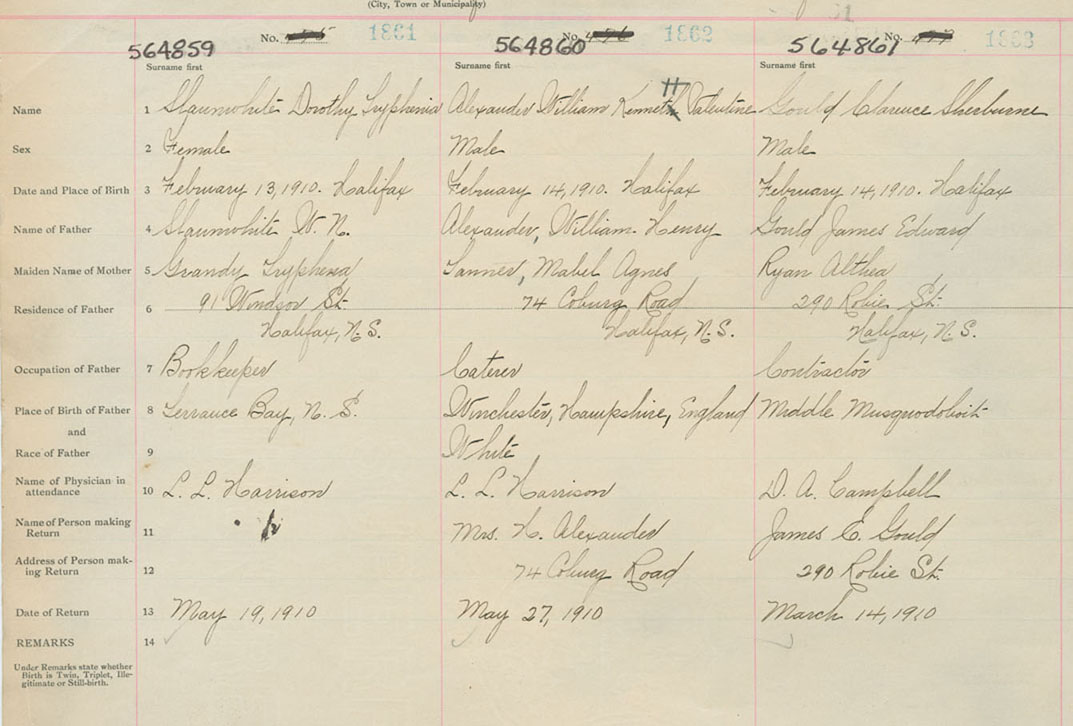 (City, Town or Municipality)
564859 No. 1861 564860 1862 564861 No. 1863
Surname first Surname first Surname first
Name 1 Slaunwhite Dorothy Tryphenia Alexander William Kenneth Valentine Gould Clarence Sherburne
Sex 2 Female Male Male
Date and Place of Birth 3 February 13, 1910. Halifax February 14, 1910. Halifax February 14, 1910. Halifax
Name of Father 4 Slaunwhite W. N. Alexander, William Henry Gould James Edward
Maiden Name of Mother 5 Grandy Tryphena Tanner, Mabel Agnes Ryan Althea
Residence of Father 6 91 Windsor St. 74 Coburg Road 290 Robie St.
Halifax, N.S. Halifax, N.S. Halifax, N.S.
Occupation of Father 7 Bookkeeper Caterer Contractor
Place of Birth of Father 8 Terrance Bay, N.S. Winchester, Hampshire, England Middle Musquodoboit
and
Race of Father 9 White
Name of Physician in
attendance 10 L. L. Harrison L. L. Harrison D. A. Campbell
Name of Person making
Return 11 Mrs. H. Alexander James E. Gould
Address of Person mak-
ing Return 12 74 Coburg Road 290 Robie St.
Date of Return 13 May 19, 1910 May 27, 1910 March 14, 1910
REMARKS 14
Under Remarks state whether
Birth is Twin, Triplet, Ille-
gitimate or Still-birth.